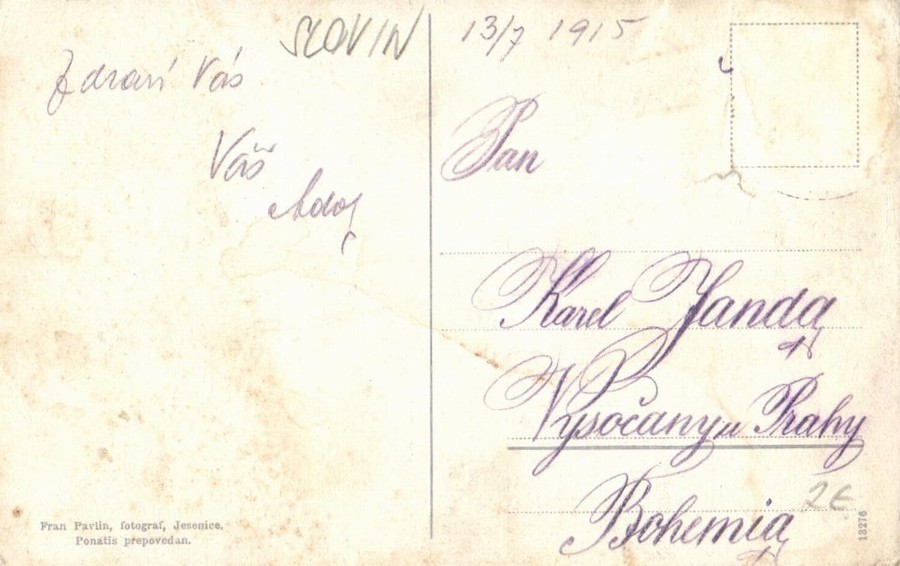 SLOVIN
Zdraví Vás
Váš
Adolf
Fran Pavlin, fotograf, Jesenice.
Ponatis prepovedan.
13/7 1915
Pan
Karel Janda
Vysočany u Prahy
Bohemia
2€
13276